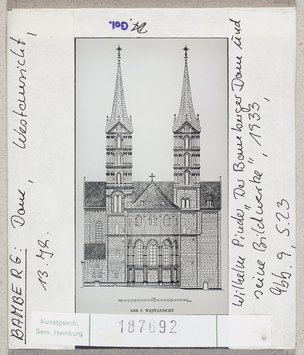 BAMBERG: Dom, Westansicht,
13. Jh.
Gol.
ABB. 9. WESTANSICHT
Wilhelm Pinder, "Der Bamberger Dom und
seine Bildwerke", 1933,
Abb. 9, S. 23
Kunstgesch.
Sem. Hamburg
187692